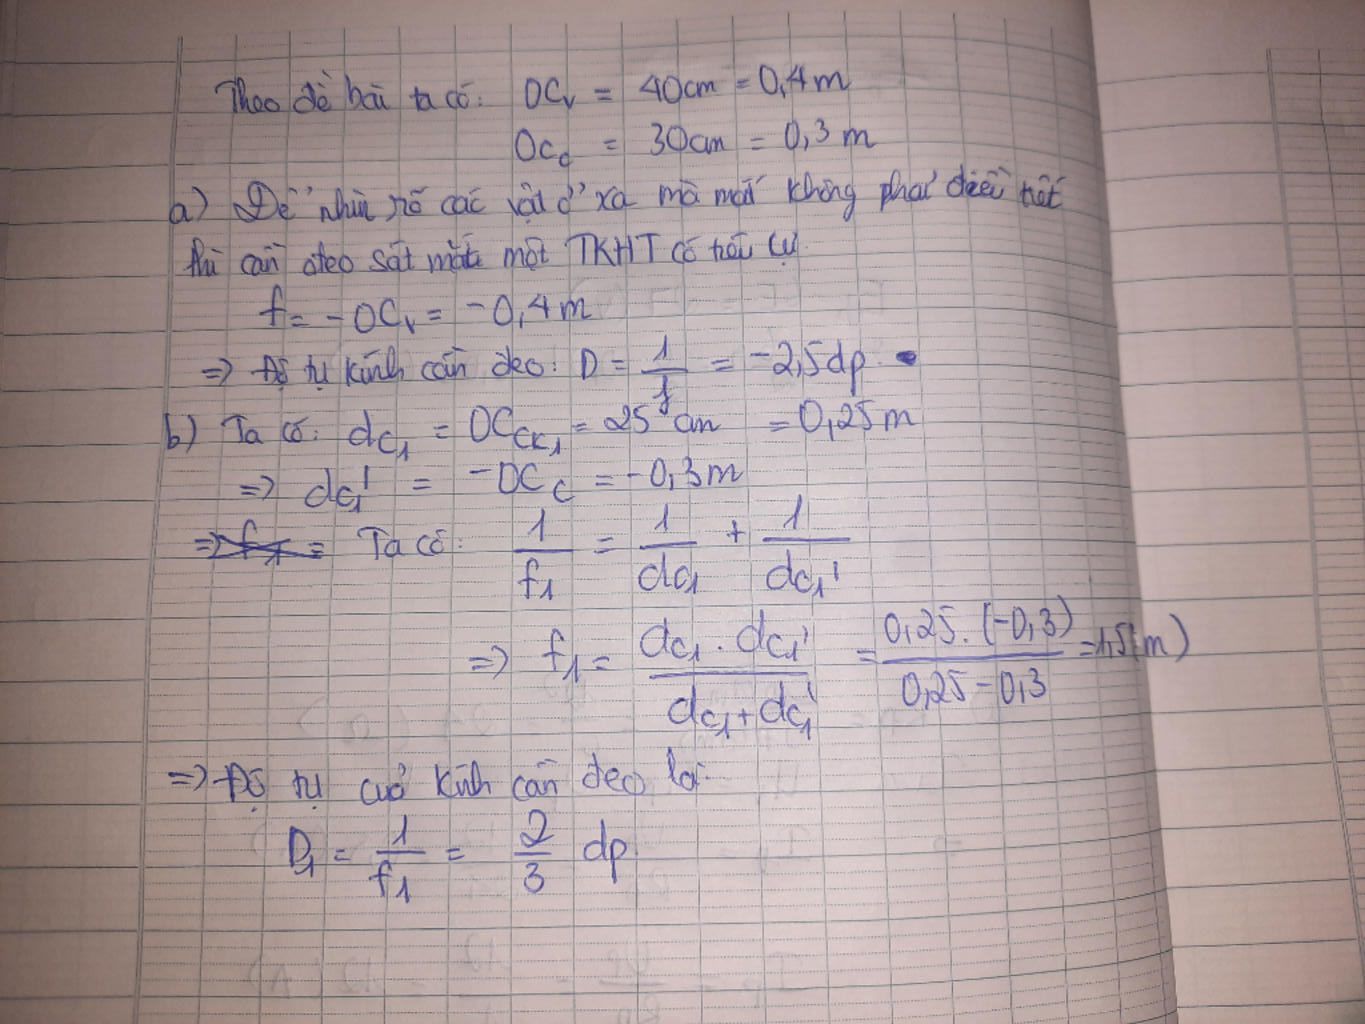 Theo đề bài ta có: OCv = 40cm = 0,4m
OCc = 30cm = 0,3m
a) Để nhìn rõ các vật ở xa mà mắt không phải điều tiết
thì cần đeo sát mắt một TKHT có tiêu cự
f = -OCv = -0,4m
=> Độ tụ kính cần đeo: D = 1/f = -2,5dp.
b) Ta có: dc1 = OCck1 = 25cm = 0,25m
=> dc1' = -OCc = -0,3m
Ta có: 1/f1 = 1/dc1 + 1/dc1'
=> f1 = dc1 . dc1' / dc1 + dc1' = 0,25.(-0,3) / 0,25-0,3 = 1,5(m)
=> Độ tụ của kính cần đeo là:
D1 = 1/f1 = 2/3 dp